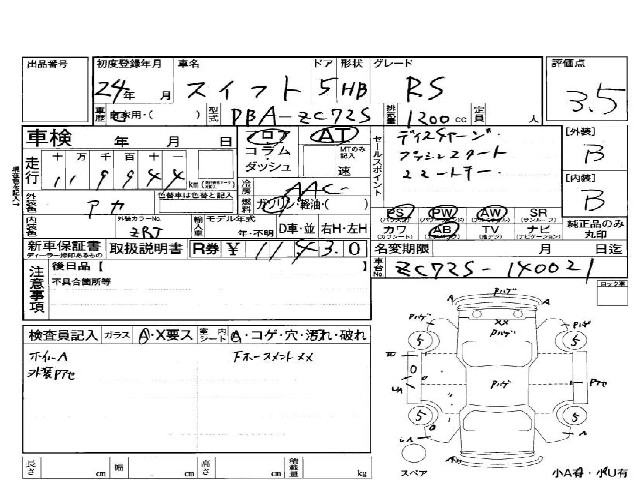 出品番号 初度登録年月 車名 ドア 形状 グレード 評価点
24年 月 スイフト 5 HB RS 3.5
車歴 自家用・( ) 型式 DBA-ZC72S 排気量 1200 cc 定員 人
車検 年 月 日 フロア コラム・ダッシュ AT MTのみ記入 速
セールスポイント
ディスチャージ・
[外装] B
走行 十 万 千 百 十 一
11 99 44 km
冷房 AAC
[内装] B
外装色 アカ 色替車は色替と記入 燃料 ガソリン・軽油・( )
PS PW AW SR (サンルーフ)
内装色 外装カラーNo. ZRJ 輸入車 モデル年式 年・不明 D車・並 右H・左H
カワ AB TV ナビ (ナビゲーション) 純正品のみ丸印
新車保証書 ディーラー捺印あるもの 取扱説明書 R券 ¥ 11430 名変期限 月 日迄
注意事項 後日品【 】 車台No. ZC72S-140021
不具合箇所等 ロック車
検査員記入 ガラス A・X要ス 室内シート A・コゲ・穴・汚れ・破れ
ホイールA
長さ cm 幅 cm 高さ cm 積載量 kg
スペア 小A有・小U有